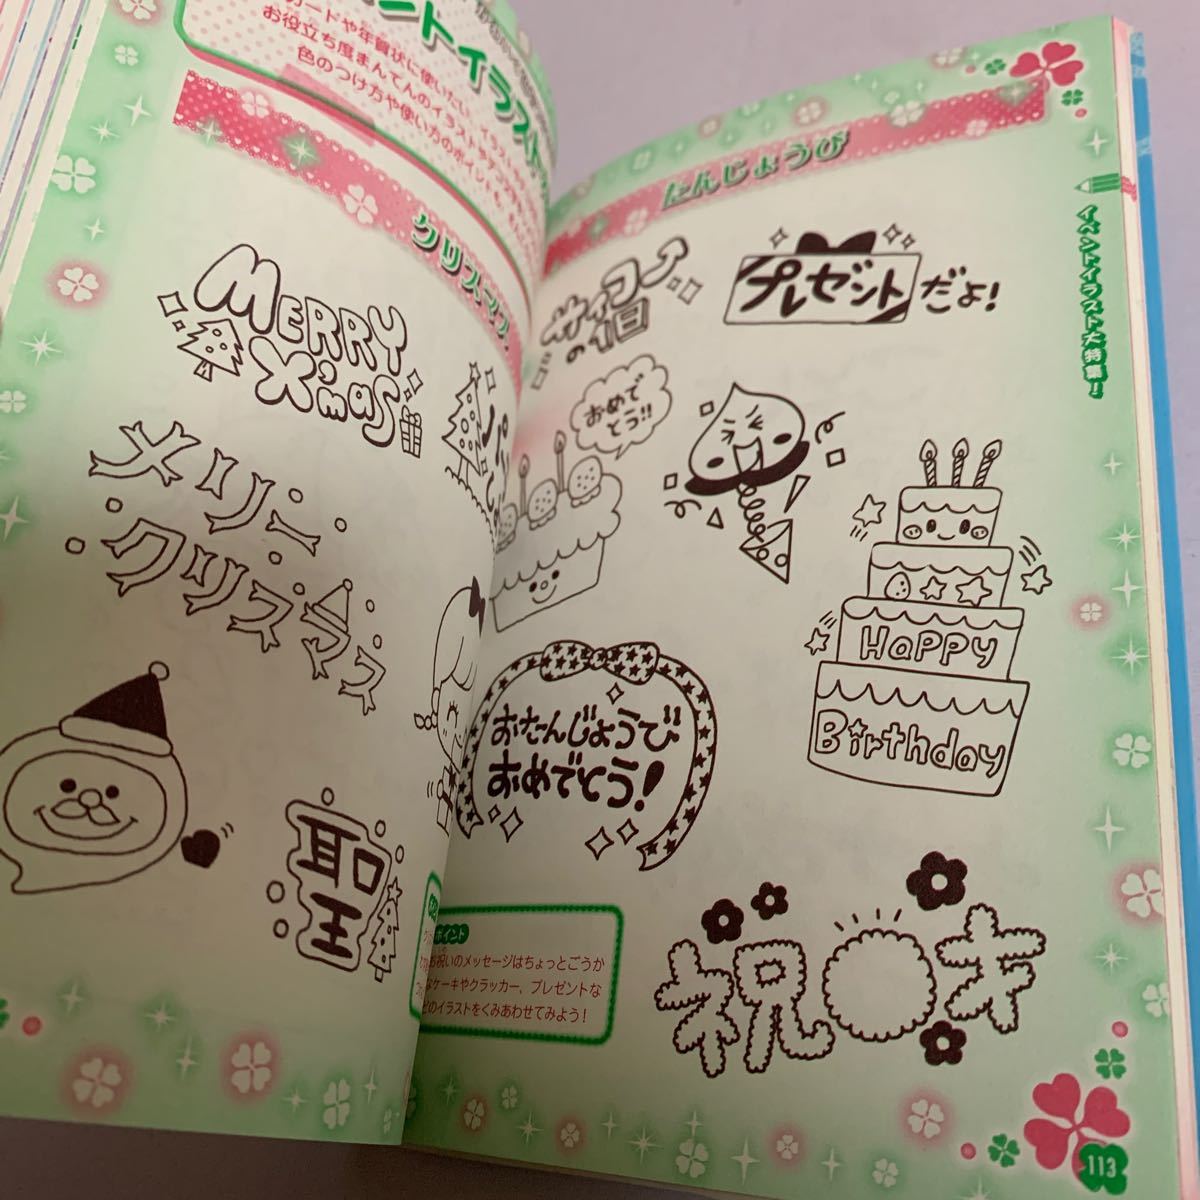 ントイラスト
カードや年賀状に使いたい、イラスト
お役立ち度まんてんのイラストや
色のつけ方や使い方のポイントも
クリスマス
MERRY
X'mas
メリー
クリスマス
聖
たんじょうび
サイコー
の1日
プレゼントだよ!
おめで
とう!!
HaPPy
Birthday
おたんじょうび
おめでとう!
ポイント
お祝いのメッセージはちょっとごうか
なケーキやクラッカー、プレゼントな
どのイラストをくみあわせてみよう!
祝○才
イベントイラスト大特集!
113